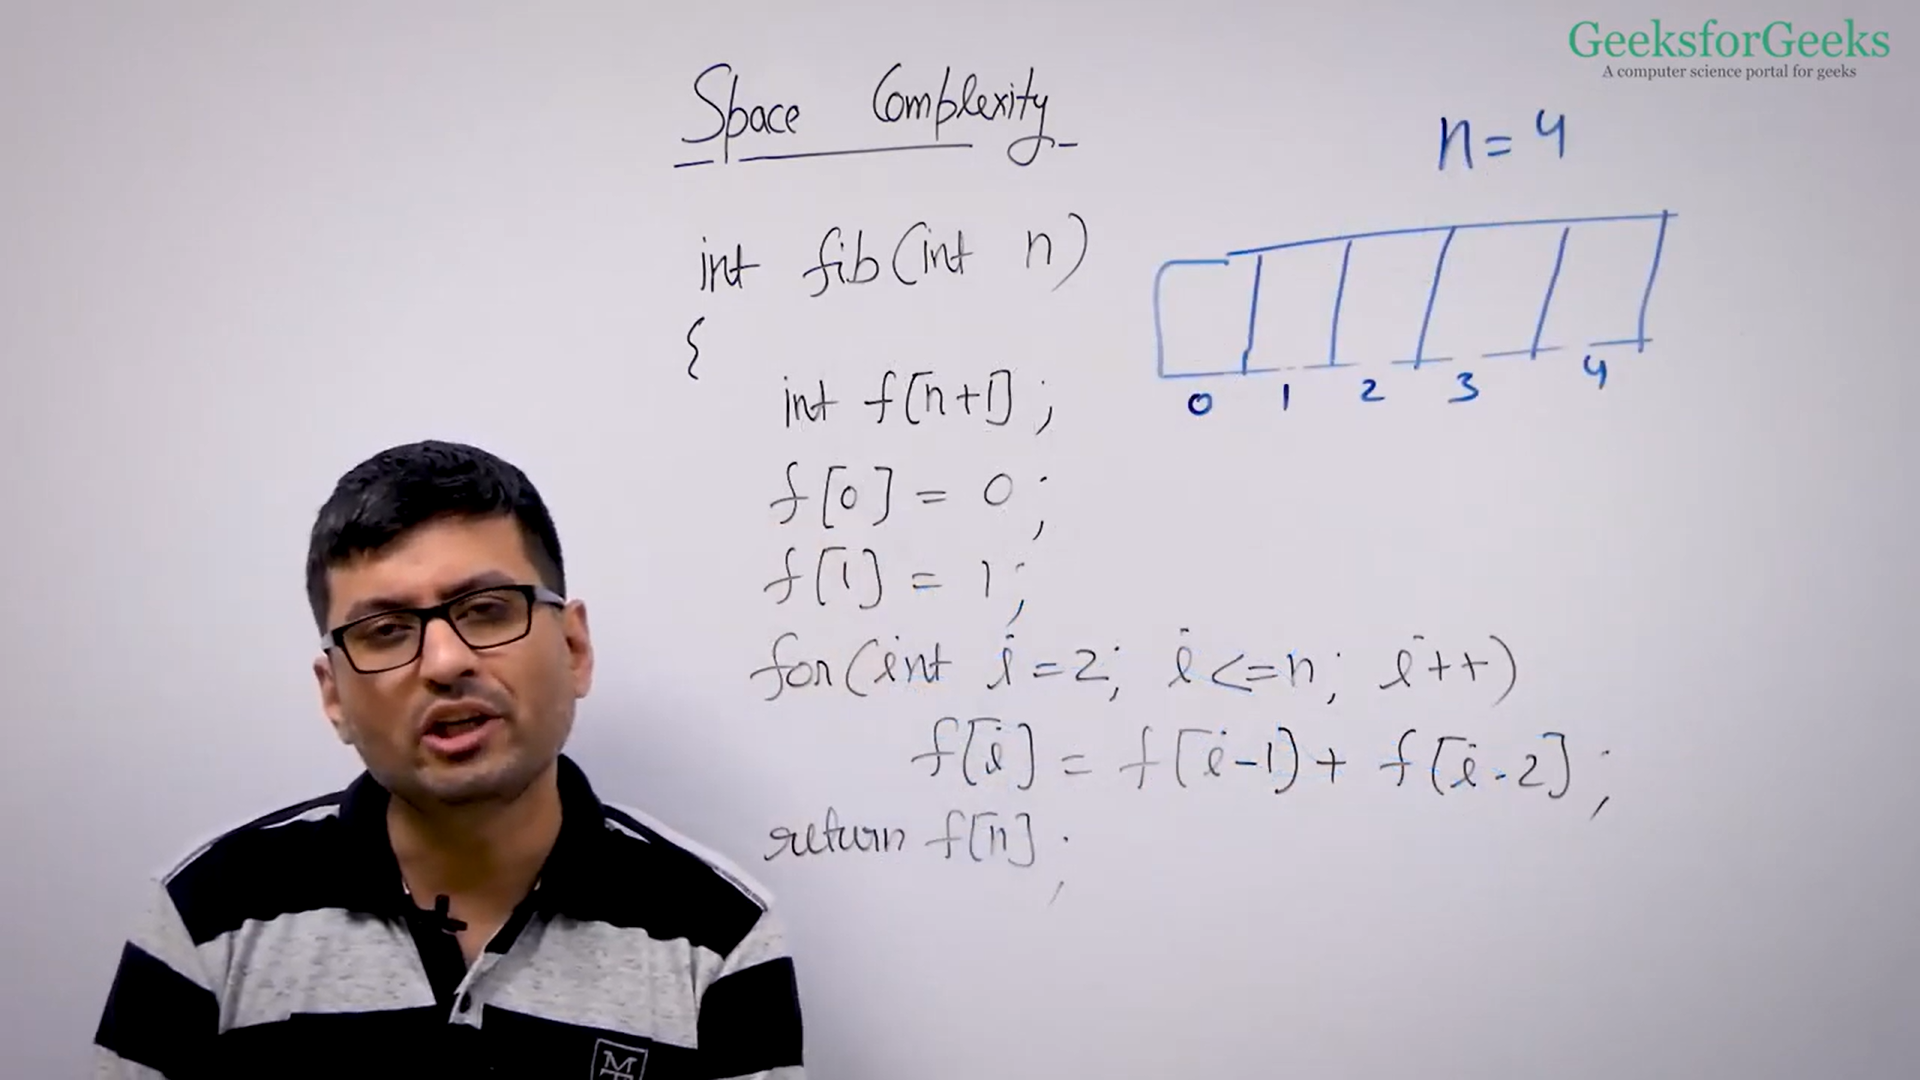 GeeksforGeeks
A computer science portal for geeks
Space Complexity
n = 4
int fib(int n)
{
0 1 2 3 4
int f[n+1];
f[0] = 0;
f[1] = 1;
for(int i=2; i<=n; i++)
f[i] = f[i-1] + f[i-2];
return f[n];
M